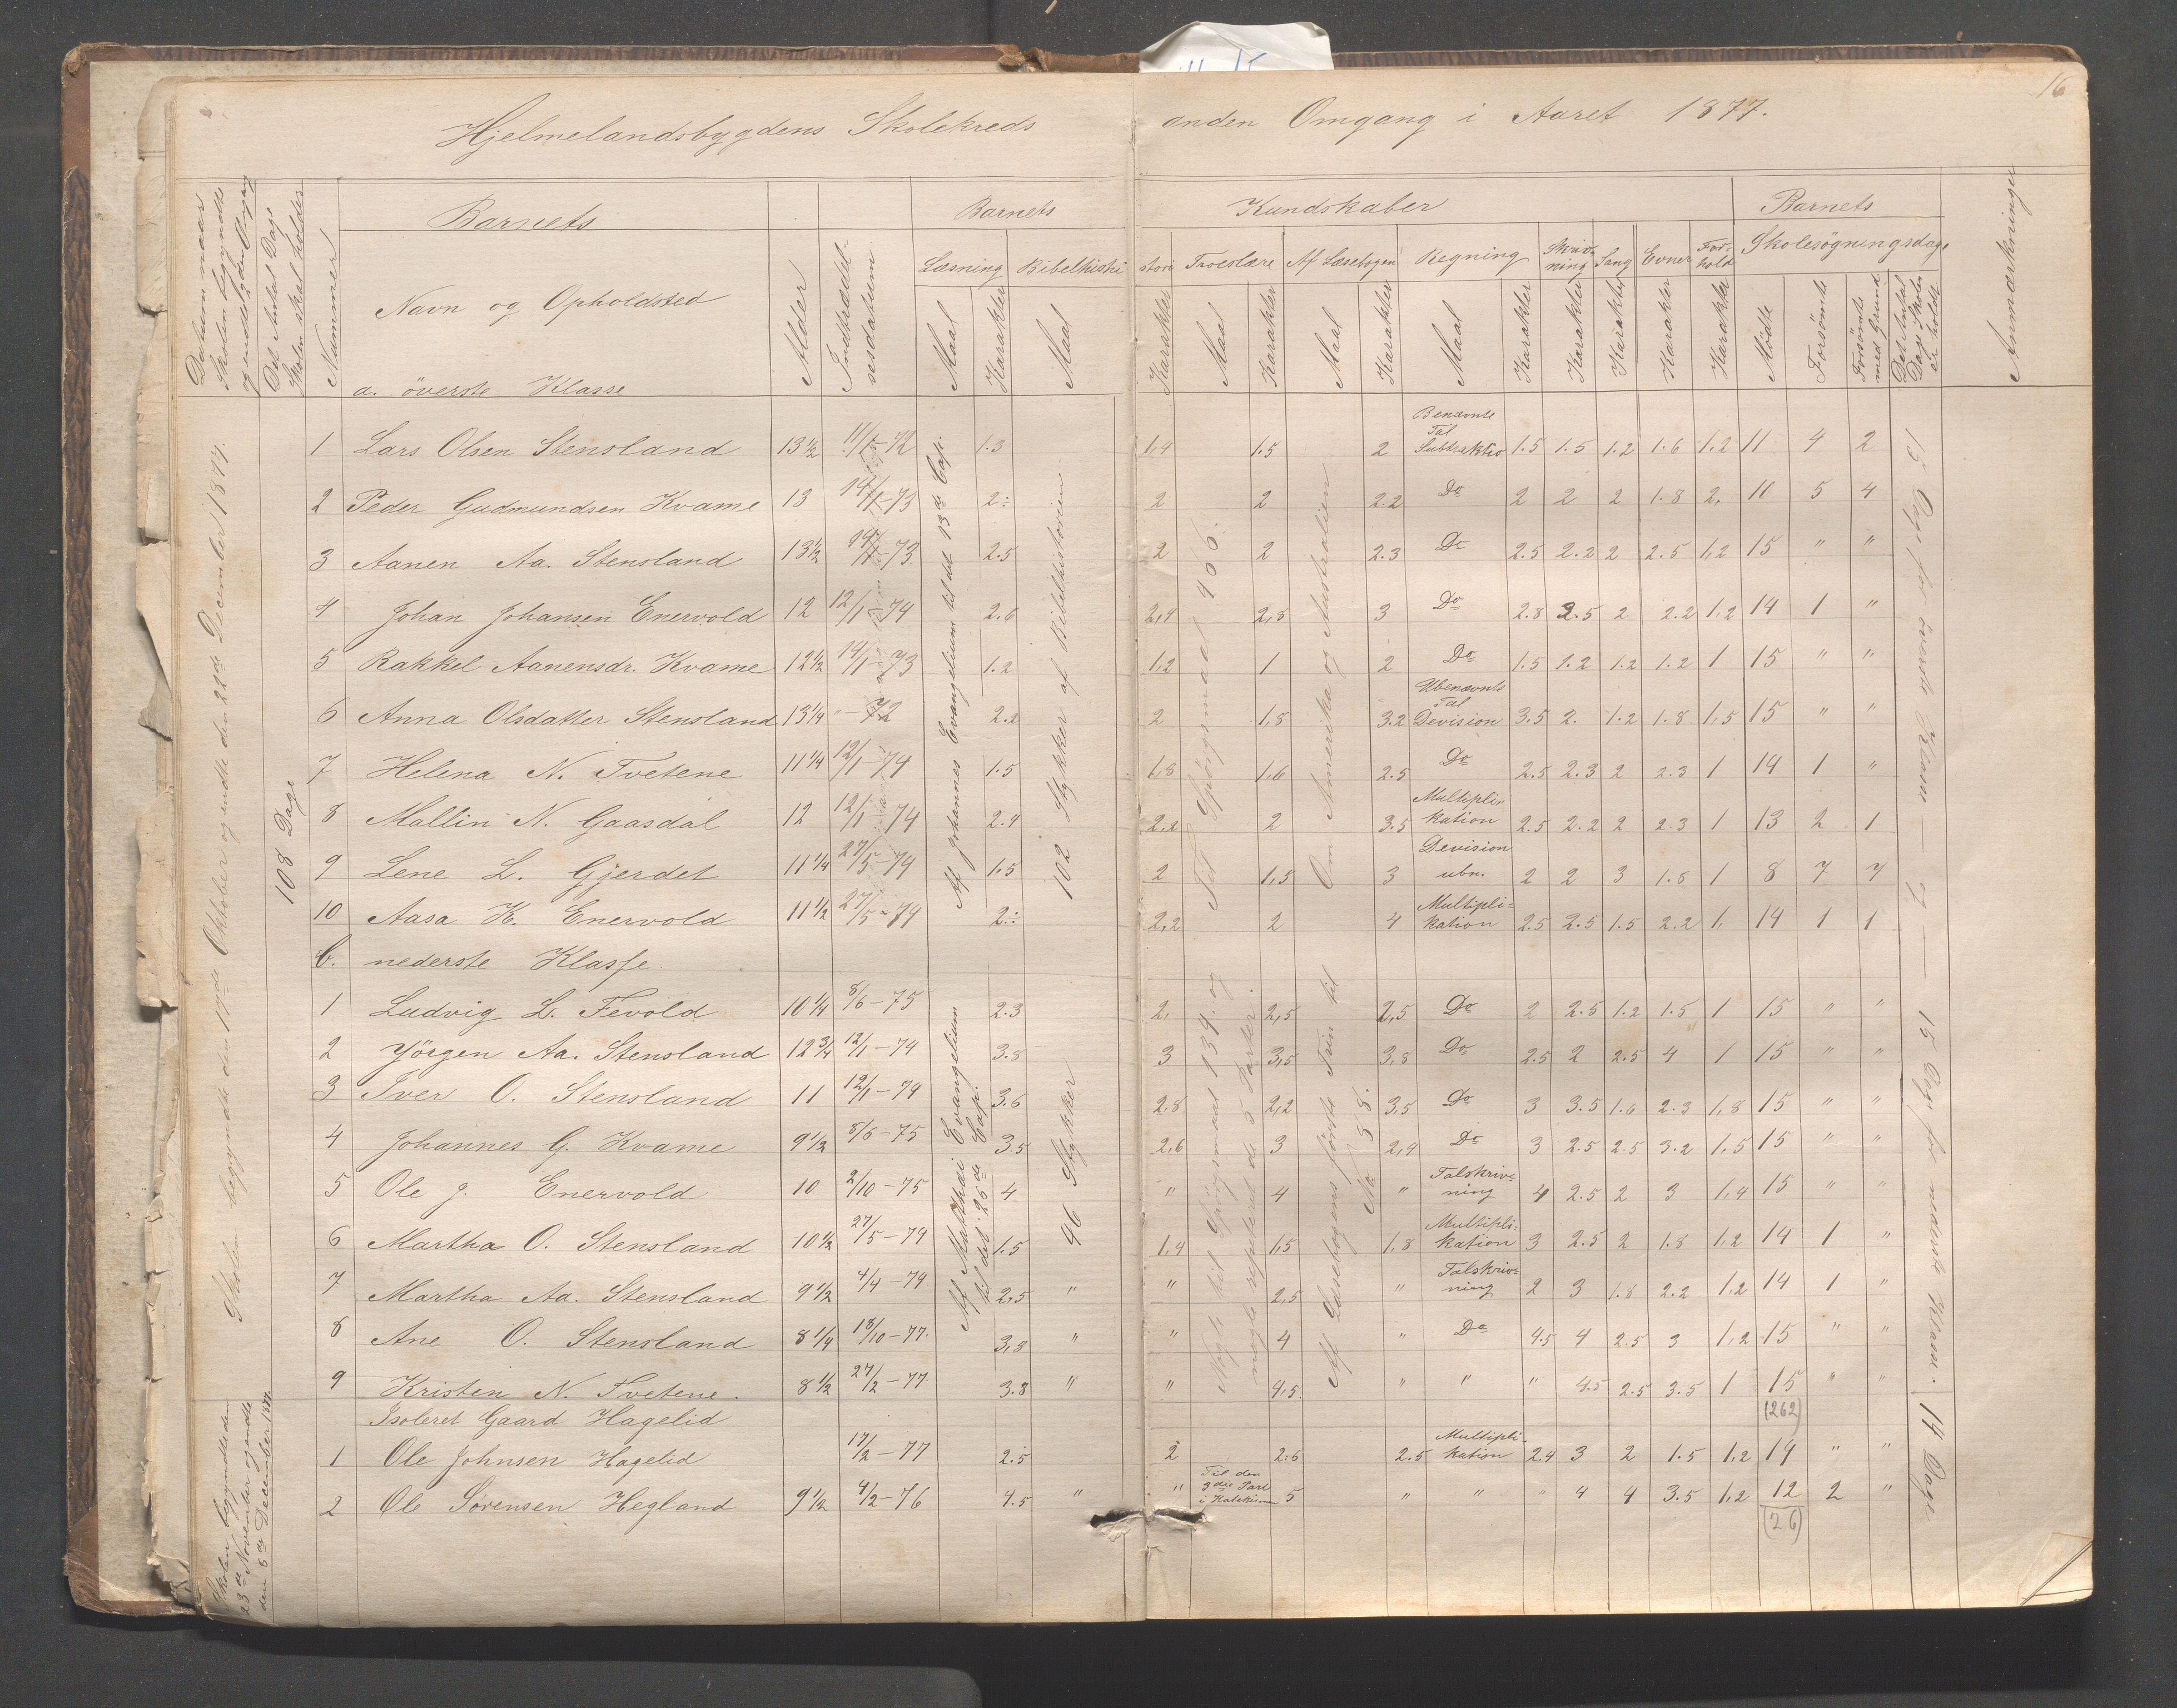 16
Hjelmelandsbygdens Skolekreds anden Omgang i Aaret 1877.
Datum naar Skolen begyndte og endte hver Omgang
Det Antal Dage Skolen skal holdes
Nummer
Barnets
Navn og Opholdsted
a. överste Klasse
Alder
Indtrædelsesdatum
Barnets Kundskaber
Læsning Bibelhistorie Troeslære Af Læsebogen Regning Skrivning Sang Evner Forhold
Maal Karakter Maal Karakter Maal Karakter Maal Karakter Maal Karakter Karakter Karakter Karakter Karakter
Barnets Skolesøgningsdage
Mødte Forsømte Forsømte med Grund Det Antal Dage Skolen er holdt
Anmærkninger
Skolen begyndte den 17de Oktober og endte den 22de December 1877.
108 Dage
Af Johannes Evangelium til det 13de Cap.
102 Stykker af Bibelhistorien
Til Spörgsmaal 406.
Om Amerika og Australien
15 Dage for överste Klasse
1 Lars Olsen Stensland 13½ 11/1-72 1.3 1,4 1.5 2 Benævnte Tal Subtraktio 1.5 1.5 1.2 1.6 1.2 11 4 2
2 Peder Gudmundsen Kvame 13 14/1-73 2: 2 2 2.2 Do 2 2 2 1.8 2. 10 5 4
3 Aanen Aa. Stensland 13½ 14/1-73 2.5 2 2 2.3 Do 2.5 2.2 2 2.5 1,2 15 " "
4 Johan Johansen Enervold 12 12/1-74 2,6 2,4 2,8 3 Do 2.8 2.5 2 2.2 1,2 14 1 "
5 Rakkel Aanensdr. Kvame 12½ 14/1-73 1.2 1,2 1 2 Do 1.5 1.2 1.2 1.2 1 15 " "
6 Anna Olsdatter Stensland 13¼ "-72 2.2 2 1,8 3.2 Ubenævnte Tal Devision 3.5 2. 1.2 1.8 1,5 15 " "
7 Helena N. Tvetene 11¼ 12/1-74 1.5 1,8 1,6 2.5 Do 2.5 2.3 2 2.3 1 14 1 "
8 Mallin N. Gaasdal 12 12/1-74 2.4 2,2 2 3.5 Multiplikation 2.5 2.2 2 2.3 1 13 2 1
9 Lene L. Gjerdet 11¼ 27/5-74 1,5 2 1,5 3 Devision ubn. 2 2 3 1.8 1 8 7 7
10 Aasa K. Enervold 11½ 27/5-74 2: 2,2 2 4 Multiplikation 2.5 2.5 1.5 2.2 1. 14 1 1
b. nederste Klasse.
Af Matthæi Evangelium til det 26de Cap.
46 Stykker
Nyt til Spörgsmaal 139. og nogle repeteret de 5 Parter.
Af Læsebogens første Trin til No 58.
15 Dage for nederste Klasse.
1 Ludvig L. Fevold 10¼ 8/6-75 2.3 2, 2,5 2,5 Do 2 2.5 1.2 1.5 1 15 " "
2 Jörgen Aa. Stensland 12¾ 12/1-74 3.8 3 3,5 3,8 Do 2.5 2 2.5 4 1 15 " "
3 Iver O. Stensland 11 12/1-74 3.6 2.8 2,2 3,5 Do 3 3.5 1.6 2.3 1,8 15 " "
4 Johannes G. Kvame 9½ 8/6-75 3.5 2,6 3 2,9 Do 3 2.5 2.5 3.2 1,5 15 " "
5 Ole J. Enervold 10 2/10-75 4 " 4 " Talskrivning 4 2.5 2 3 1,4 15 " "
6 Martha O. Stensland 10½ 27/5-74 1.5 1,4 1,5 1,8 Multiplikation 3 2.5 2 1.8 1,2 14 1 "
7 Martha Aa. Stensland 9½ 4/4-79 2,5 " " 2,5 " Talskrivning 2 3 1.8 2.2 1,2 14 1 "
8 Ane O. Stensland 8¼ 18/10-77. 3,8 " " 4 " Do 4.5 4 2.5 3 1,2 15 " "
9 Kristen N. Tvetene. 8½ 27/2-77 3.8 " " 4,5. " " " 4.5 2.5 3.5 1 15 " "
(262)
Isoleret Gaard Hagelid
Skolen begyndte den 23de November og endte den 8de December 1877.
14 Dage
1 Ole Johnsen Hagelid 17/2-77 2.5 2 2.6 2.5 Multiplikation 2.4 3 2 1.5 1,2 14 " "
2 Ole Sørensen Hegland 9½ 4/2-76 4.5 " " Til den 3die Part i Katekismen 5 " " " 4 4 3.5 1,2 12 2 "
(26)